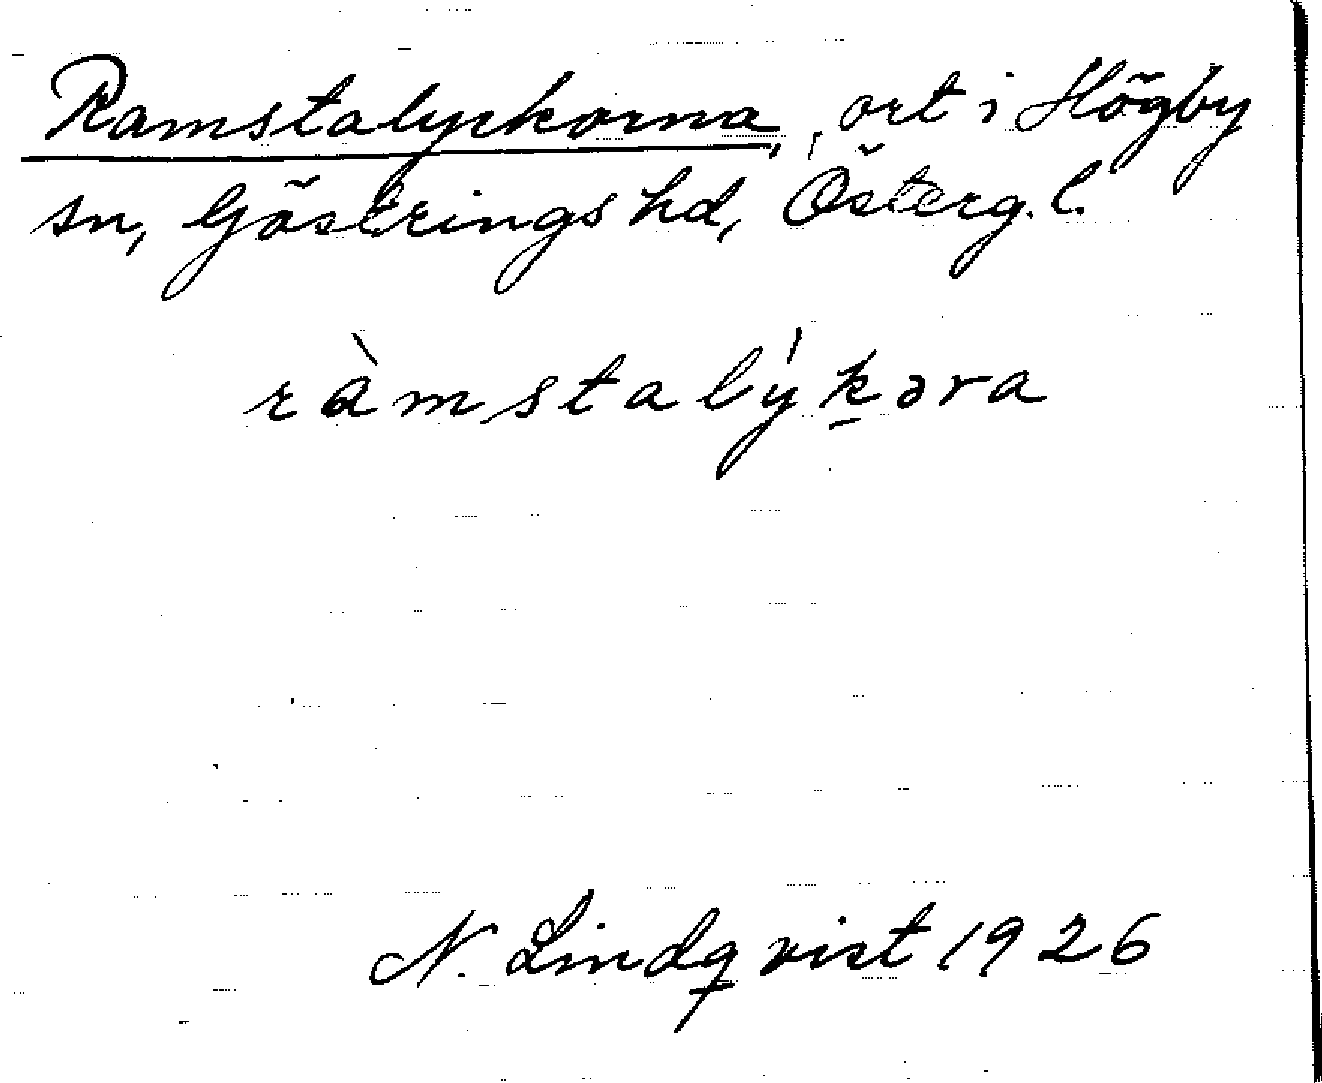 Ramstalyckorna, ort i Högby
sn, Göstrings hd, Österg. l.
ràmstalýk̠əra
N. Lindqvist 1926